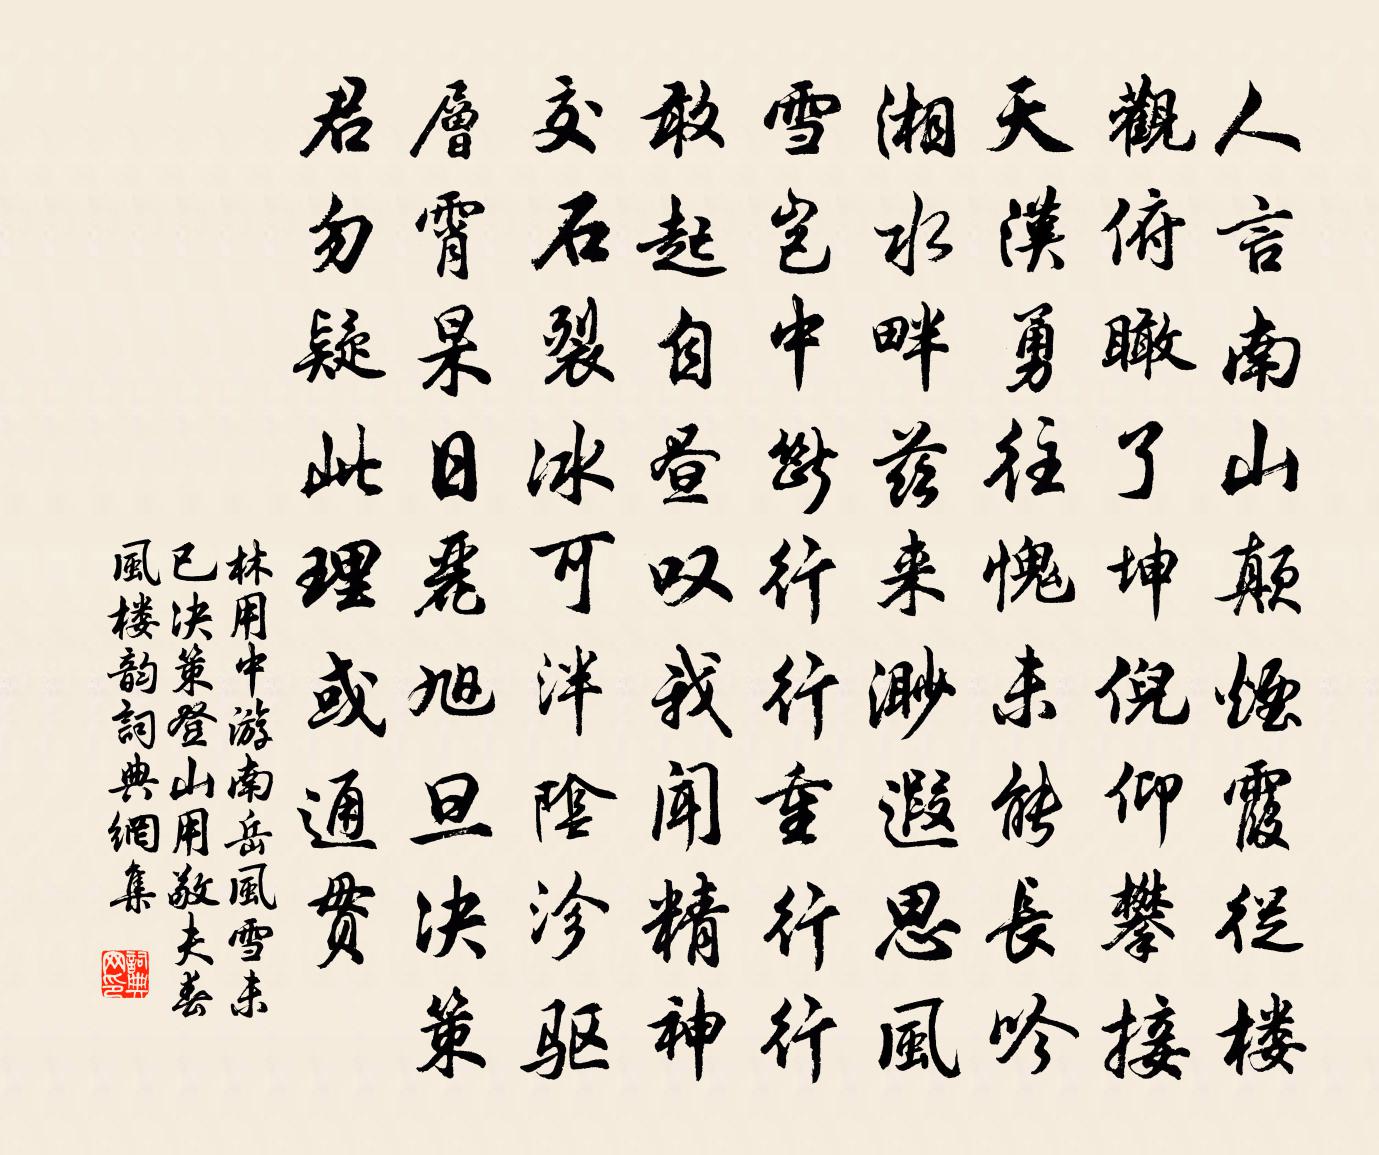 人言南山颠煙霞從楼
觀俯瞰了坤倪仰攀接
天漢勇往愧未能長吟
湘水畔兹来渺遐思風
雪豈中斷行行重行行
敢起自昼叹我闻精神
交石裂冰可泮陰沴驱
層霄杲日麗旭旦决策
君勿疑此理或通贯
林用中游南岳風雪未
已决策登山用敬夫春
風楼韵詞典網集
詞典网印